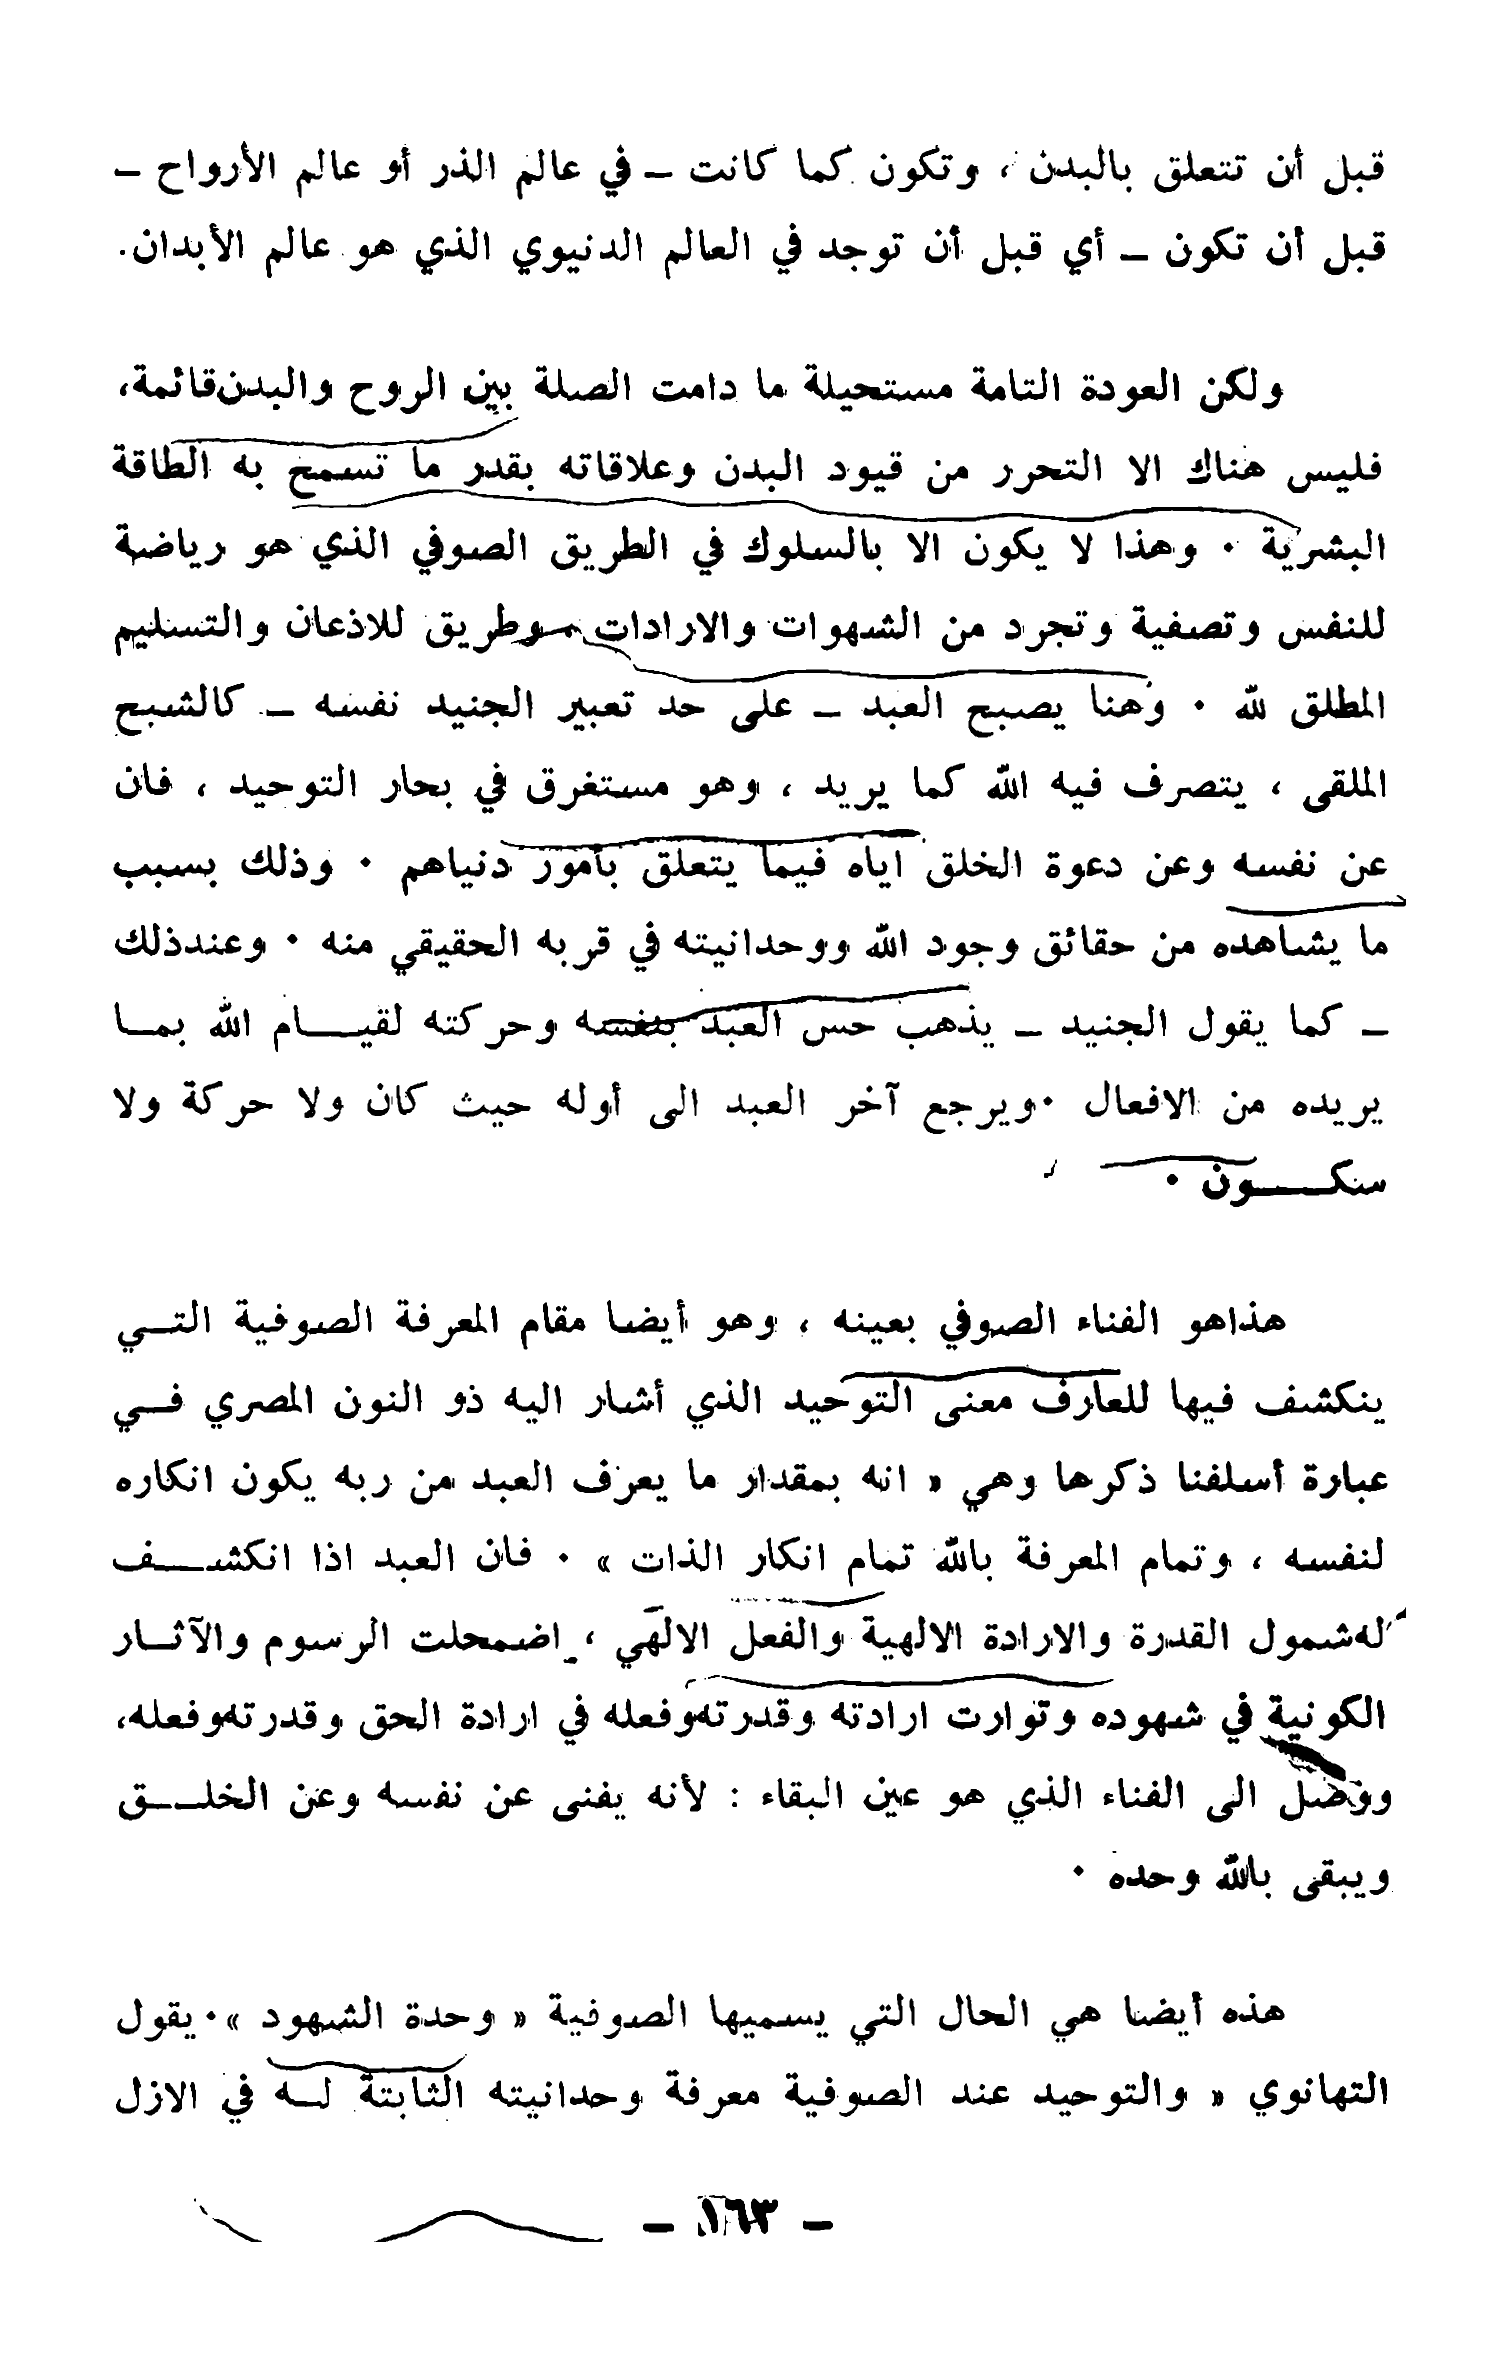 قبل أن تتعلق بالبدن ، وتكون كما كانت – في عالم الذر أو عالم الأرواح –
قبل أن تكون – أي قبل أن توجد في العالم الدنيوي الذي هو عالم الأبدان.
ولكن العودة التامة مستحيلة ما دامت الصلة بين الروح والبدن قائمة،
فليس هناك الا التحرر من قيود البدن وعلاقاته بقدر ما تسمح به الطاقة
البشرية . وهذا لا يكون الا بالسلوك في الطريق الصوفي الذي هو رياضة
للنفس وتصفية وتجرد من الشهوات والارادات ، وطريق للاذعان والتسليم
المطلق لله . وهنا يصبح العبد – على حد تعبير الجنيد نفسه – كالشبح
الملقى ، يتصرف فيه الله كما يريد ، وهو مستغرق في بحار التوحيد ، فان
عن نفسه وعن دعوة الخلق اياه فيما يتعلق بأمور دنياهم . وذلك بسبب
ما يشاهده من حقائق وجود الله ووحدانيته في قربه الحقيقي منه . وعندذلك
– كما يقول الجنيد – يذهب حس العبد بنفسه وحركته لقيام الله بما
يريده من الافعال .ويرجع آخر العبد الى أوله حيث كان ولا حركة ولا
سكون .
هذاهو الفناء الصوفي بعينه ، وهو أيضا مقام المعرفة الصوفية التي
ينكشف فيها للعارف معنى التوحيد الذي أشار اليه ذو النون المصري في
عبارة أسلفنا ذكرها وهي « انه بمقدار ما يعرف العبد من ربه يكون انكاره
لنفسه ، وتمام المعرفة بالله تمام انكار الذات » . فان العبد اذا انكشف
له شمول القدرة والارادة الالهية والفعل الالهي ، اضمحلت الرسوم والآثار
الكونية في شهوده وتوارت ارادته وقدرته وفعله في ارادة الحق وقدرته وفعله،
ووصل الى الفناء الذي هو عين البقاء : لأنه يفنى عن نفسه وعن الخلق
ويبقى بالله وحده .
هذه أيضا هي الحال التي يسميها الصوفية « وحدة الشهود ». يقول
التهانوي « والتوحيد عند الصوفية معرفة وحدانيته الثابتة له في الازل
– ١٦٣ –